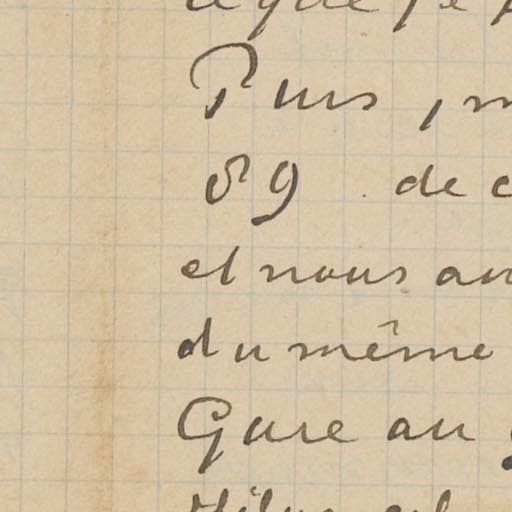 Puis,
89 de
et nous
du même
Gare au